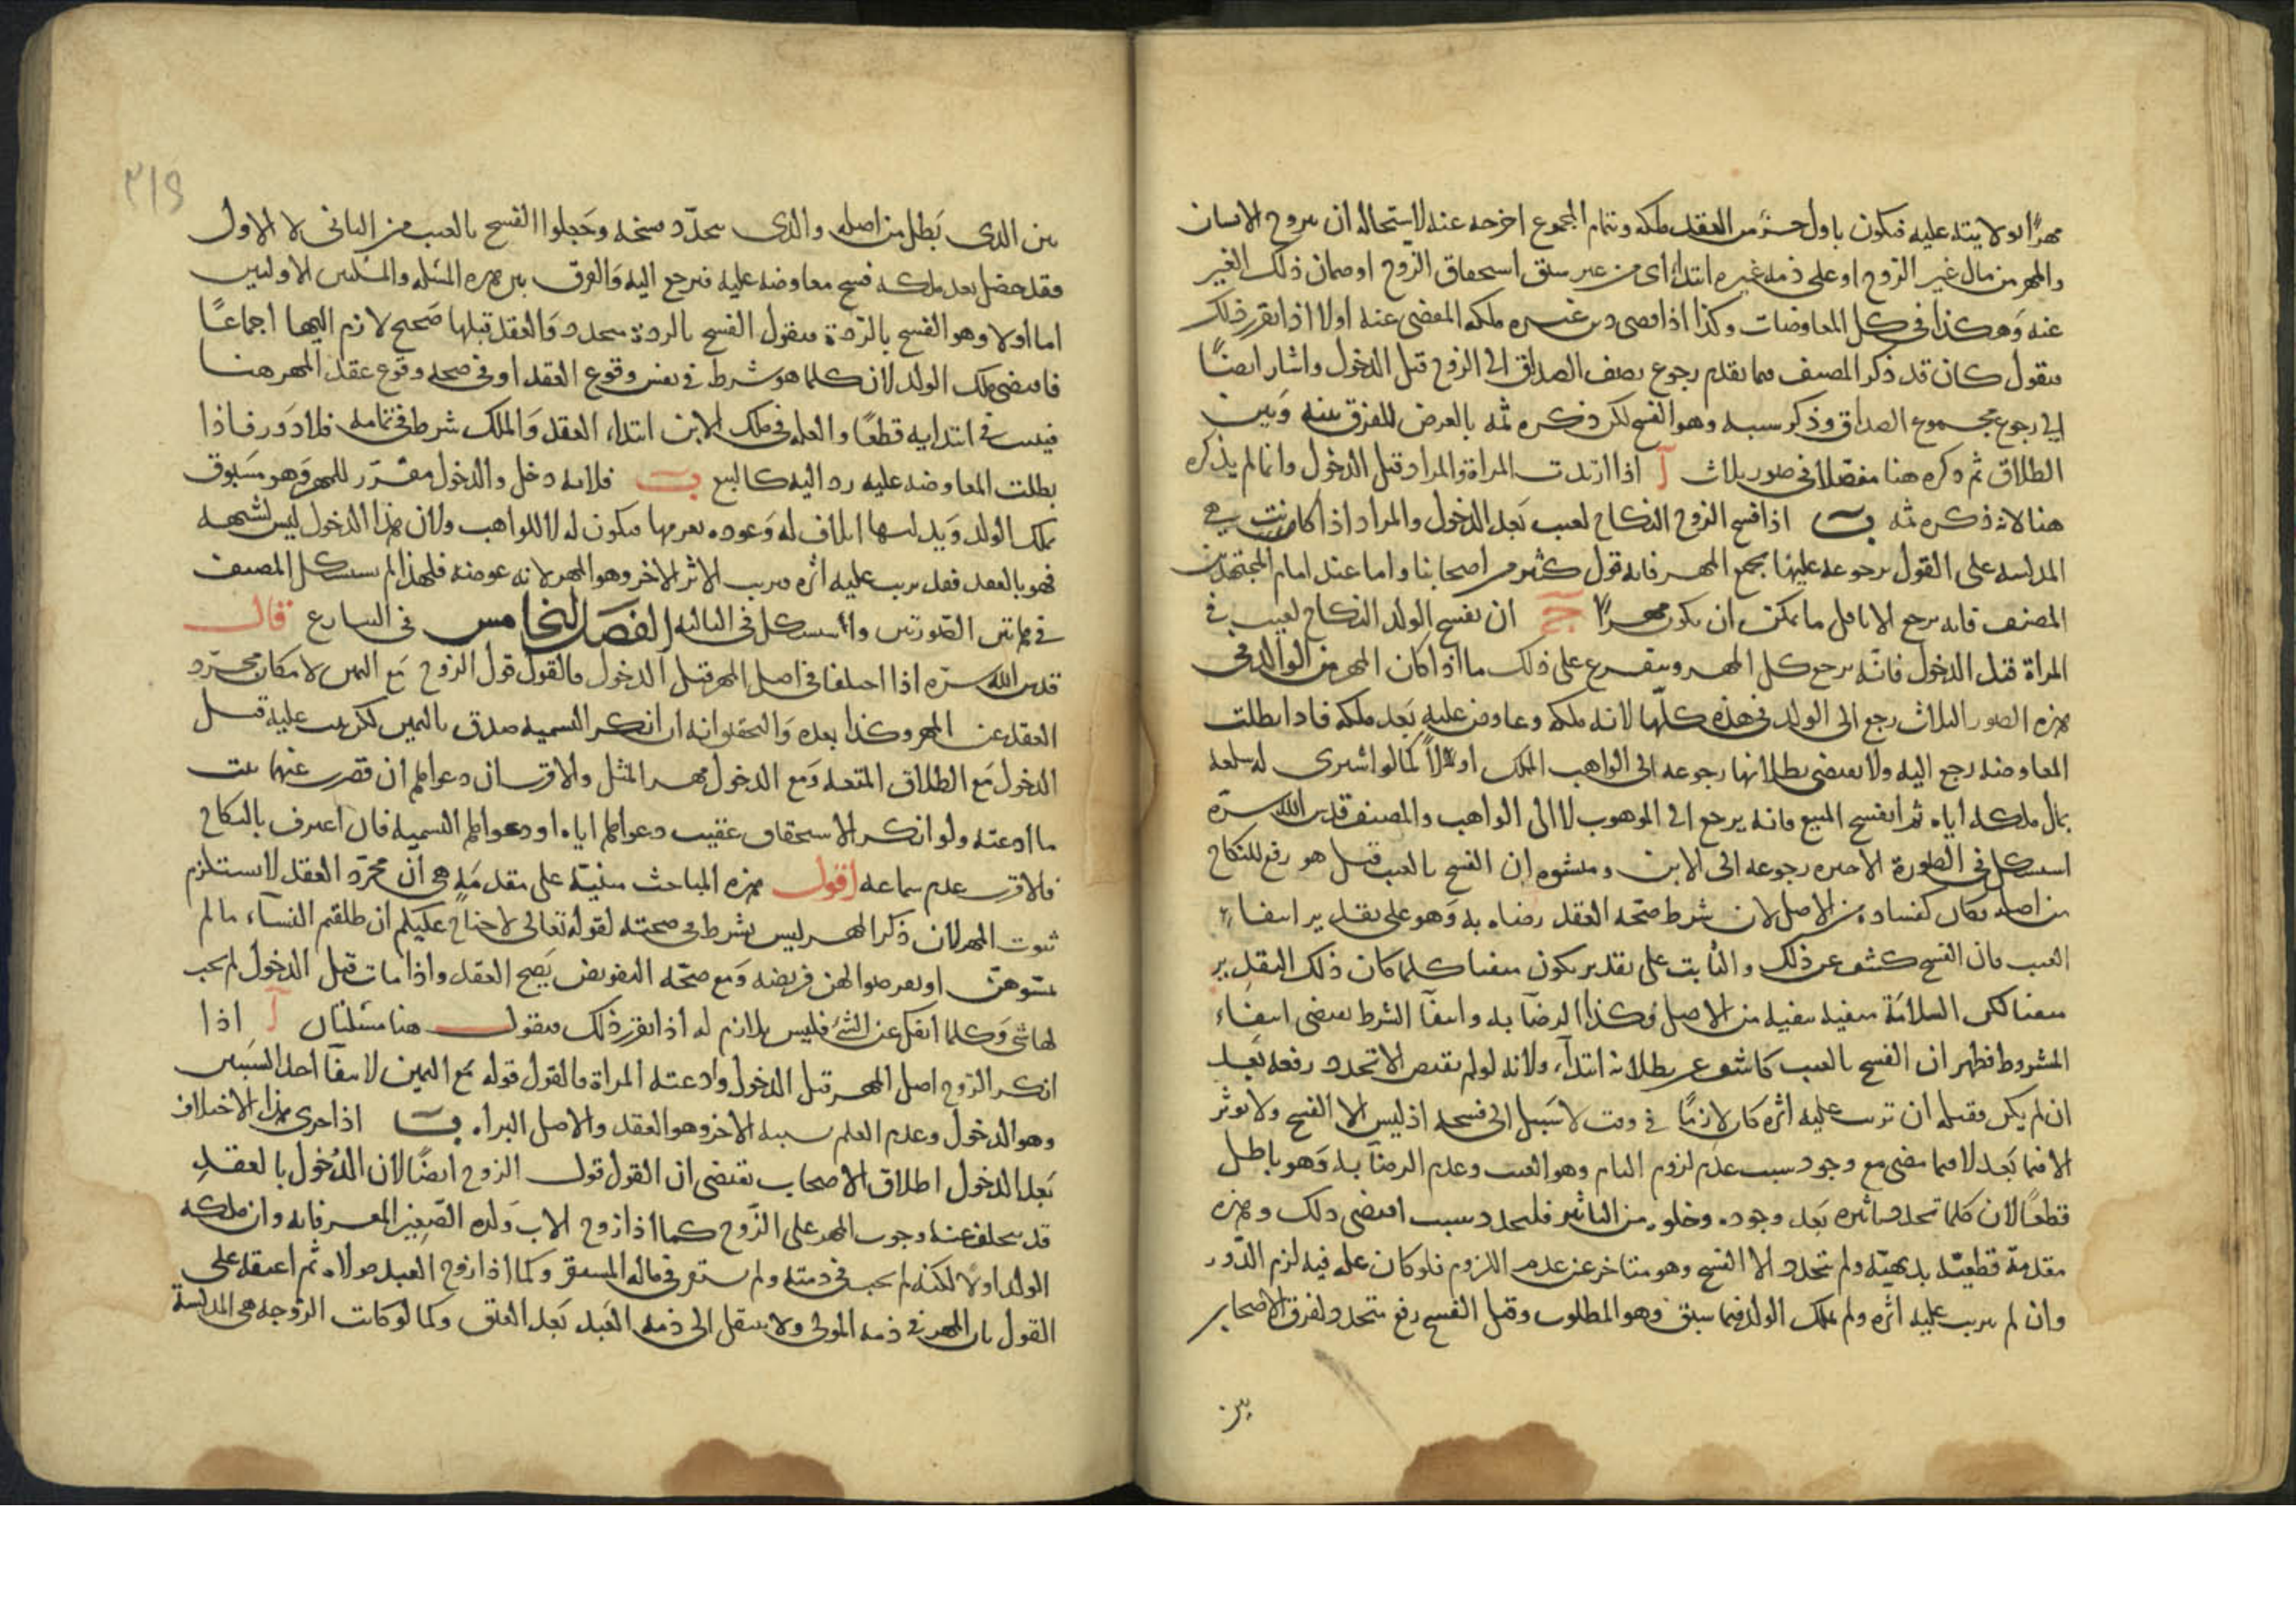 مهرًا او لابنته عليه فيكون باول جزء من العقد ملكه وبتمام المجموع اخرجه عنه لاستحاله ان يتزوج الانسان
والمهر من مال غير الزوج او على ذمة غيره ابتداءً اى من غير سبق استحقاق الزوج او ضمان ذلك الغير
عنه وهكذا في كل المعاوضات وكذا اذا قضى دين غيره ملكه المقضى عنه اولا اذا تقرر ذلك
فنقول كان قد ذكر المصنف فيما تقدم رجوع نصف الصداق الى الزوج قبل الدخول واشار ايضًا
الى رجوع مجموع الصداق وذكر سببه وهو الفسخ لكن ذكره ثمه بالعرض للفرق بينه وبين
الطلاق ثم ذكره هنا مفصلا في صور ثلاث آ اذا ارتدت المراة والمراد قبل الدخول وانما لم يذكره
هنا لانه ذكره ثمه ب اذا فسخ الزوج النكاح لعيب بعد الدخول والمراد اذا كانت هي
المدلسه على القول برجوعه عليها بجميع المهر فانه قول كثير من اصحابنا واما عند امام المجتهدين
المصنف فانه يرجع الا باقل ما يمكن ان يكون مهرًا ج ان يفسخ الولد النكاح لعيب في
المراة قبل الدخول فانه يرجع كل المهر ويتفرع على ذلك ما اذا كان المهر من الوالد في
هذه الصور الثلاث رجع الى الولد في هذه كلها لانه ملكه وعاوض عليه بعد ملكه فاذا بطلت
المعاوضه رجع اليه ولا يقتضى بطلانها رجوعه الى الواهب الملك اولًا كما لو اشترى له سلعه
بمال ملكه اياه ثم انفسخ المبيع فانه يرجع الى الموهوب لا الى الواهب والمصنف قدس الله سره
استشكل في الصورة الاخيره رجوعه الى الابن ومنشوه ان الفسخ بالعيب قيل هو رفع للنكاح
من اصله فكان كفساده من الاصل لان شرط صحة العقد رضاه به وهو على تقدير انتفاء
العيب فان الفسخ كشف عن ذلك والثابت على تقدير يكون منفيا كلما كان ذلك التقدير
منفيا لكن السلامة منفيه من الاصل وكذا الرضا به وانتفا الشرط يقتضى انتفاء
المشروط فظهر ان الفسخ بالعيب كاشف عن بطلانه ابتداء، ولانه لو لم يقتض الا تجدد رفعه بعد
ان لم يكن فقبله ان ترتب عليه اثره كان لازمًا في وقت لا سبيل الى فسخه اذ ليس الا الفسخ ولا يوثر
الا فيما بعد لا فيما مضى مع وجود سبب عدم لزوم التام وهو العيب وعدم الرضا به وهو باطل
قطعًا لان كلما تجدد تاثيره بعد وجوده وخلوه من التاثير فلتجدد سبب اقتضى ذلك وهذه
مقدمة قطعيه بديهيه ولم يتجدد الا الفسخ وهو متاخر عن عدم اللزوم فلو كان علة فيه لزم الدور
وان لم يترتب عليه اثره ولم يملك الولد فيما سبق وهو المطلوب وقيل الفسخ رفع متجدد لفرق الاصحاب
بين
٣١٩
بين الذى بطل من اصله والذى يتجدد فسخه وجعلوا الفسخ بالعيب من الثانى لا الاول
فقد حصل بعد ملكه فسخ معاوضه عليه فيرجع اليه والفرق بين هذه المسئله والمسئلتين الاوليين
اما اولا وهو الفسخ بالردة فنقول الفسخ بالردة يتجدد والعقد قبلها صحيح لازم اليها اجماعًا
فاقتضى ملك الولد لان كلما هو شرط في نفس وقوع العقد او في صحة وقوع عقد المهر هنا
فيثبت في ابتدايه قطعًا والعله في ملك الابن ابتداء العقد والملك شرط في تمامه فلا دور فاذا
بطلت المعاوضه عليه رد اليه كالبيع ب فلانه دخل والدخول مقرر للمهر وهو مسبوق
بملك الولد وتدليسها اتلاف له وعوده بغرمها فيكون له لا للواهب ولان هذا الدخول ليس لشبهه
فهو بالعقد فقد ترتب عليه اثره فترتب الاثر الاخر وهو المهر لانه عوضه فلهذا لم يستشكل المصنف
في هاتين الصورتين واستشكل في الثالثه الفصل الخامس في التنازع قال
قدس الله سره اذا اختلفا في اصل المهر قبل الدخول فالقول قول الزوج مع اليمين لامكان تجرد
العقد عن المهر وكذا بعده والتحقيق انه ان انكر التسميه صدق باليمين لكن يثبت عليه قبل
الدخول مع الطلاق المتعه ومع الدخول مهر المثل والاقرب ان دعواها ان قصرت عنهما ثبت
ما ادعته ولو انكر الاستحقاق عقيب دعواها اياه او دعواها التسميه فان اعترف بالنكاح
فالاقرب عدم سماعه اقول هذه المباحث مبنية على مقدمة هى ان مجرد العقد لا يستلزم
ثبوت المهر لان ذكر المهر ليس بشرط في صحته لقوله تعالى لا جناح عليكم ان طلقتم النساء ما لم
تمسوهن او تفرضوا لهن فريضه ومع صحة التفويض يصح العقد واذا مات قبل الدخول لم يجب
لها شى وكلما انفك عن الشئ فليس بلازم له اذا تقرر ذلك فنقول هنا مسئلتان آ اذا
انكر الزوج اصل المهر قبل الدخول وادعته المراة فالقول قوله مع اليمين لانتفا احد السببين
وهو الدخول وعدم العلم بسببه الاخر وهو العقد والاصل البراه ب اذا جرى هذا الاختلاف
بعد الدخول اطلاق الاصحاب يقتضى ان القول قول الزوج ايضًا لان الدخول بالعقد
قد يتخلف عنه وجوب المهر على الزوج كما اذا زوج الاب ولده الصغير المعسر فانه وان ملكه
الولد اولا لكنه لم يجب في ذمته ولم يستقر في ماله المستقر وكما اذا زوج العبد مولاه ثم اعتقه على
القول بان المهر في ذمة المولى ولا ينتقل الى ذمة العبد بعد العتق وكما لو كانت الزوجه هى المدلسة